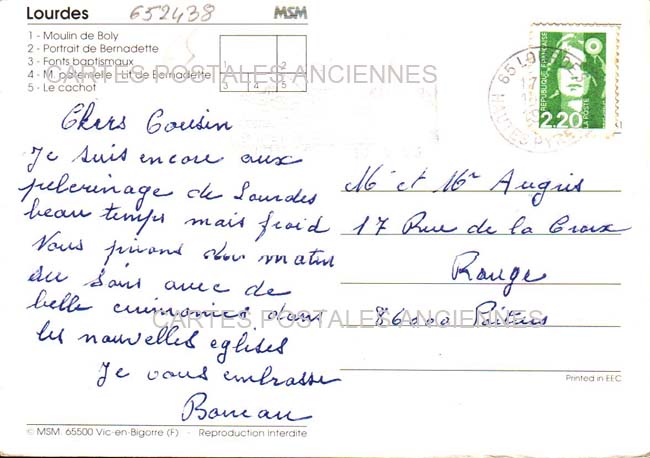 Lourdes
652438
MSM
1 - Moulin de Boly
2 - Portrait de Bernadette
3 - Fonts baptismaux
4 - M. paternelle - Lit de Bernadette
5 - Le cachot
1
2
3
4
5
CARTES POSTALES ANCIENNES
65 LOURDES
HAUTES PYRENEES
REPUBLIQUE FRANÇAISE
2,20
LA POSTE
Chers Cousin
Je suis encore aux
pelerinage de Lourdes
beau temps mais froid
Nous prions du matin
au soir avec de
belle ceremonies dans
les nouvelles eglises
Je vous embrasse
Mr et Mme Augris
17 Rue de la Croix
Rouge
86000 Poitiers
CARTES POSTALES ANCIENNES
Printed in EEC
© MSM. 65500 Vic-en-Bigorre (F) - Reproduction Interdite